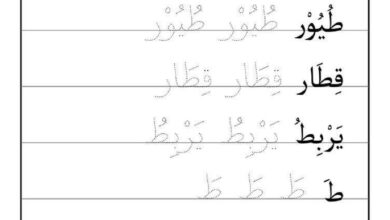 طُيُوْر طُيُوْر طُيُوْر
قِطَار قِطَار قِطَار
يَرْبِطُ يَرْبِطُ يَرْبِطُ
طَ طَ طَ طَ